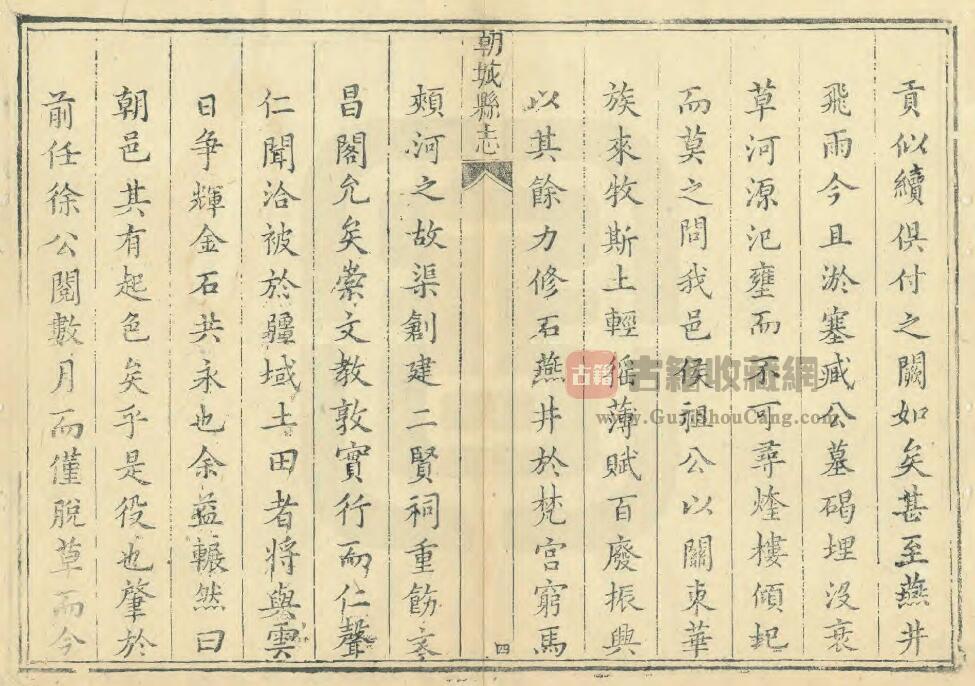 貢似續俱付之闕如矣甚至燕井
飛雨今且淤塞臧公墓碣埋没衰
草河源汜壅而不可尋烽樓傾圮
而莫之問我邑侯祖公以關東華
族來牧斯土輕徭薄賦百廢振興
以其餘力修石燕井於梵宫窮馬
朝城縣志
四
頰河之故渠創建二賢祠重飭
昌閣允矣崇文教敦實行而仁聲
仁聞洽被於疆域土田者將與雲
日争輝金石共永也余益輾然曰
朝邑其有起色矣乎是役也肇於
前任徐公閱數月而僅脫草而今
古籍
古籍收藏網
www.GujiShouCang.com